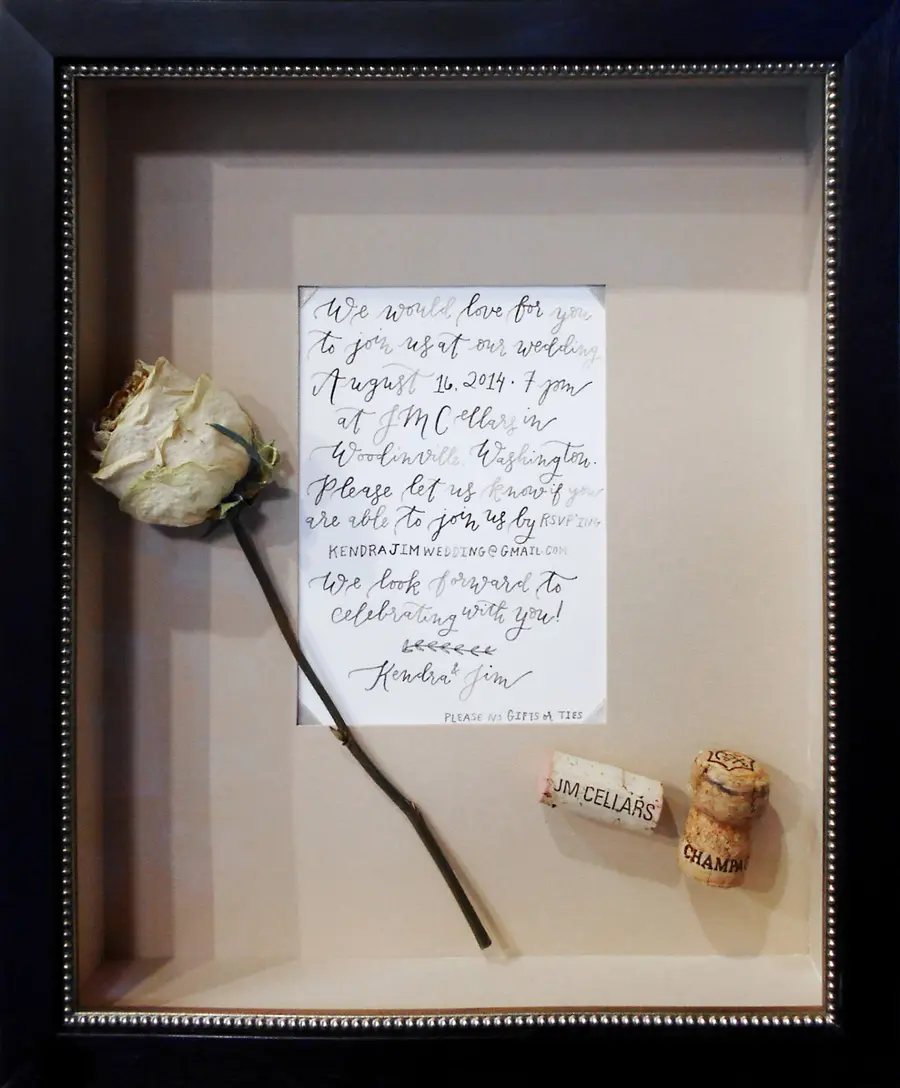 We would love for you
to join us at our wedding
August 16. 2014 · 7 pm
at JM Cellars in
Woodinville, Washington.
Please let us know if you
are able to join us by RSVP'ING
KENDRAJIMWEDDING@GMAIL.COM
We look forward to
celebrating with you!
Kendra & Jim
PLEASE NO GIFTS or TIES
JM CELLARS
CHAMPA